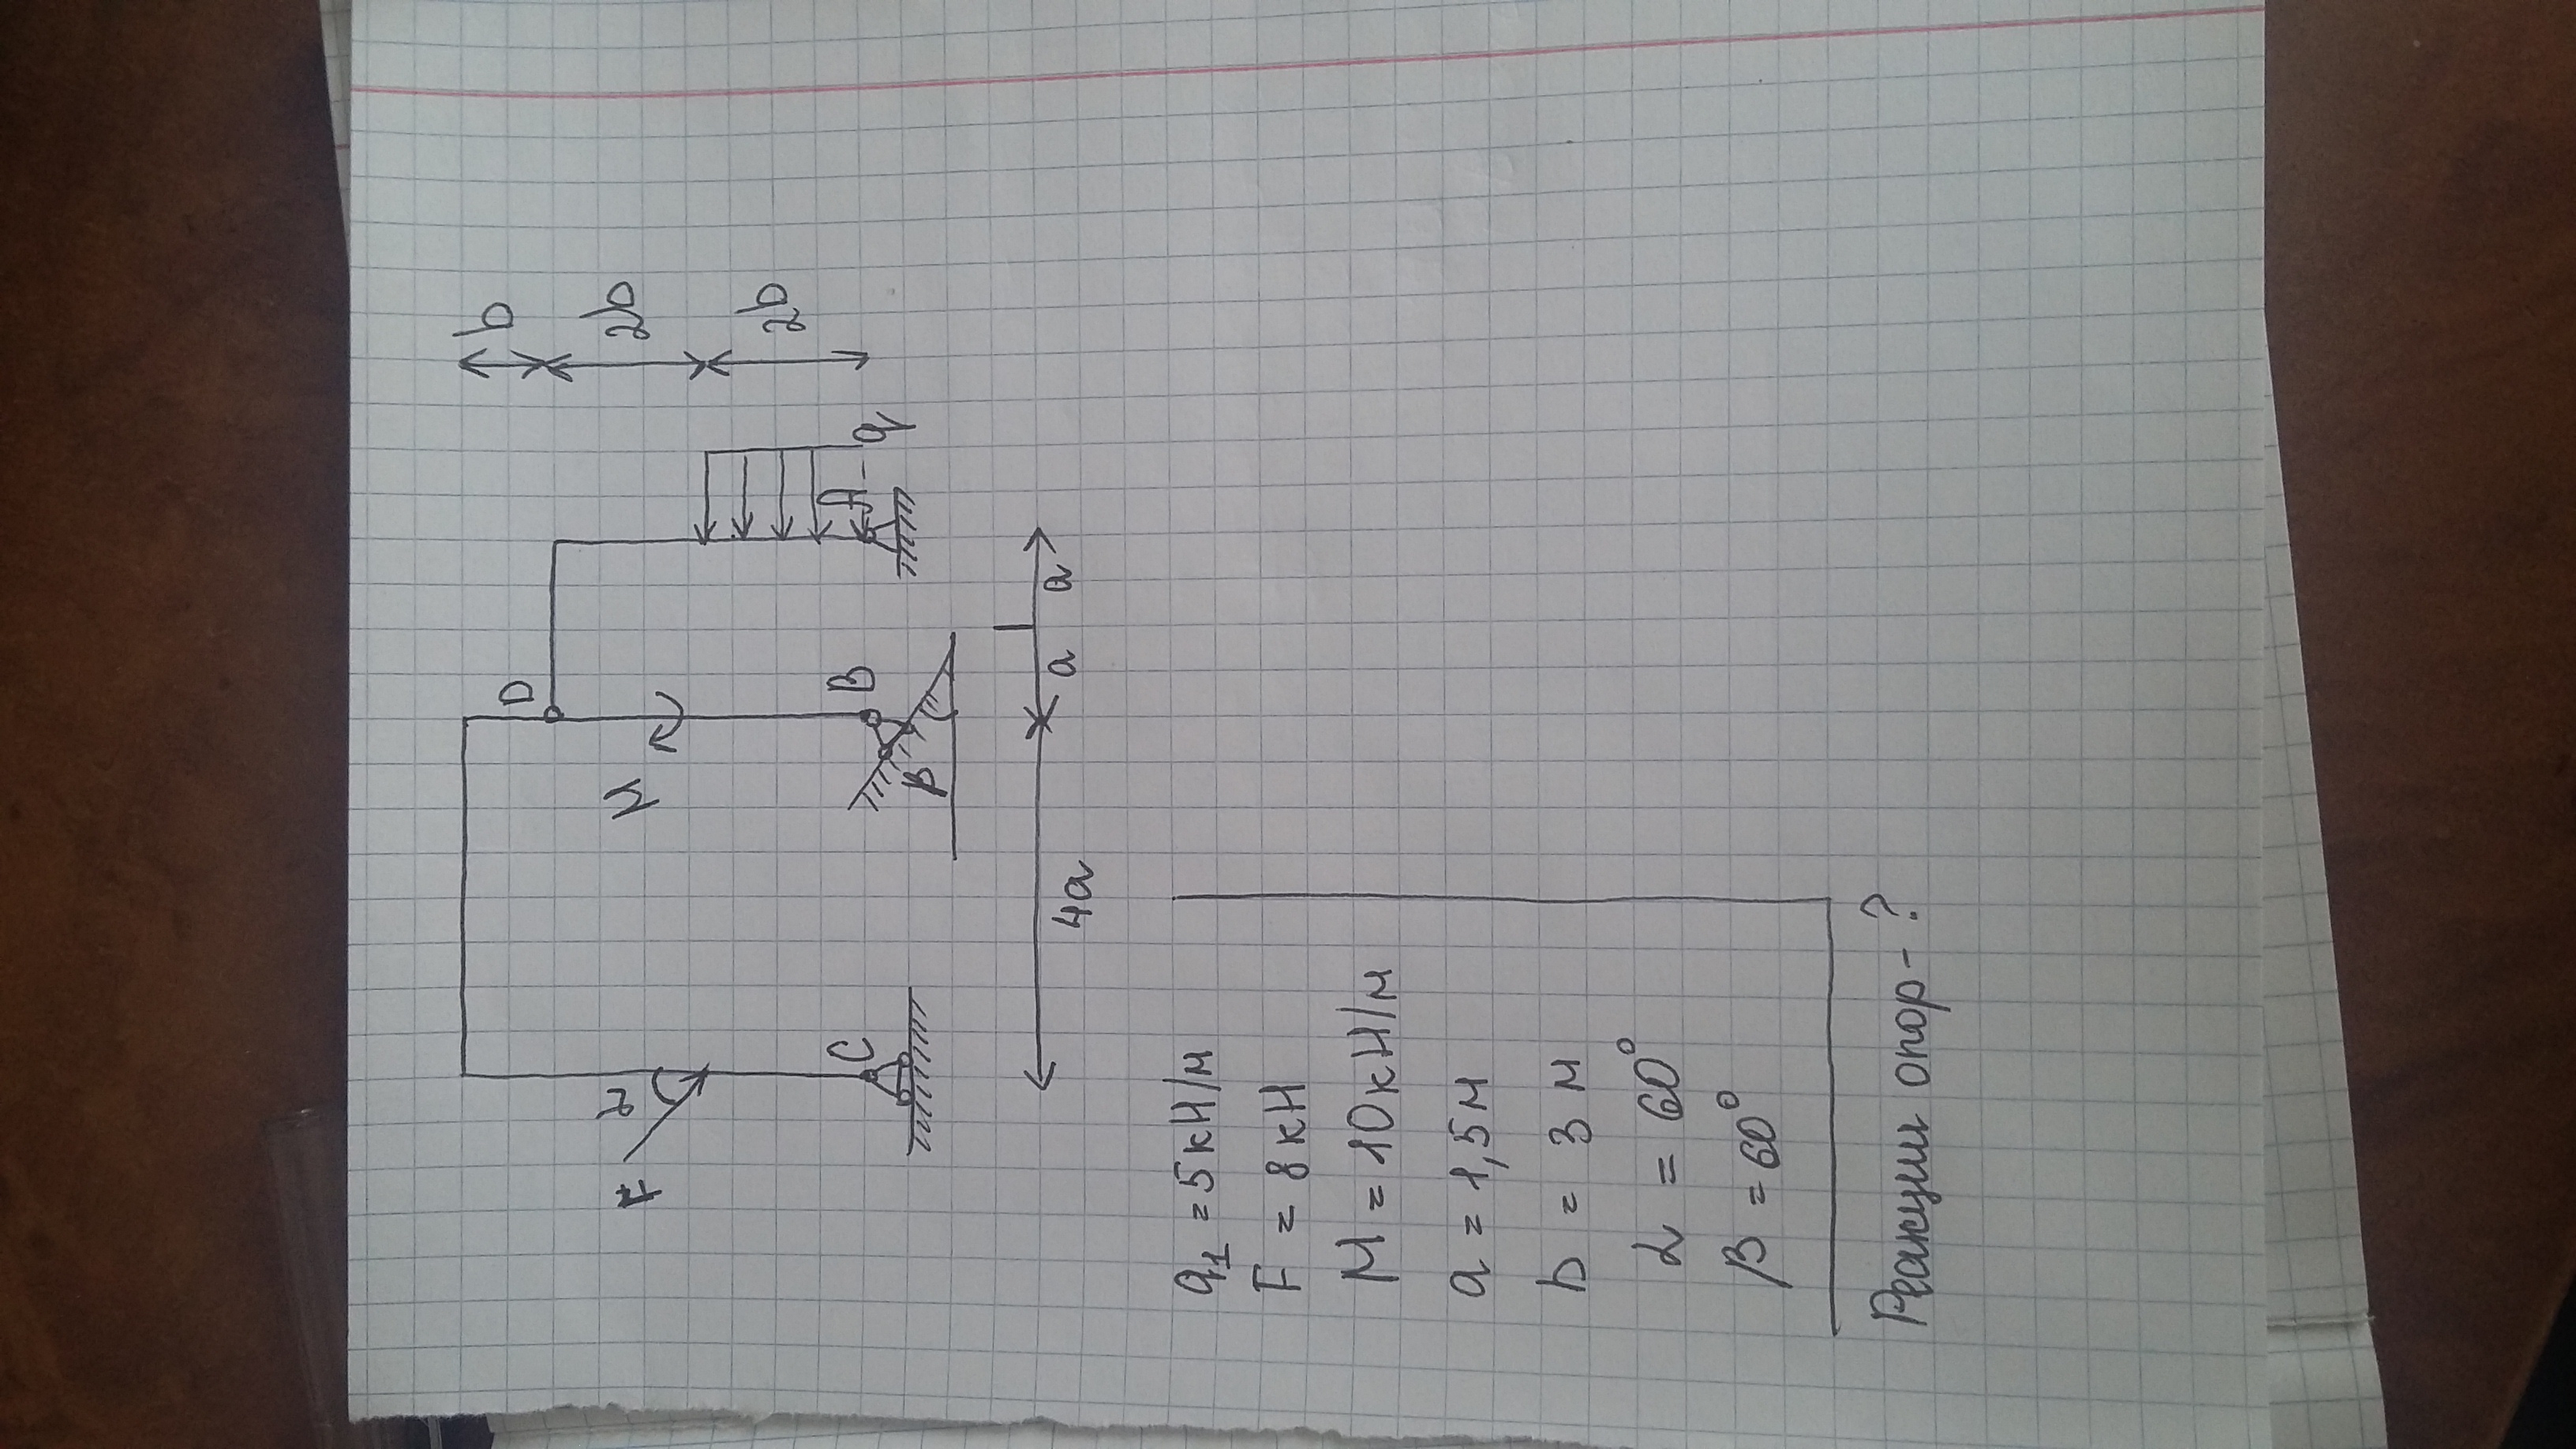 b
2b
2b
D
M
α
F
A
q
B
C
β
4a
a
a
q₁ = 5 кН/м
F = 8 кН
M = 10 кН/м
a = 1,5 м
b = 3 м
α = 60°
β = 60°
Реакции опор - ?